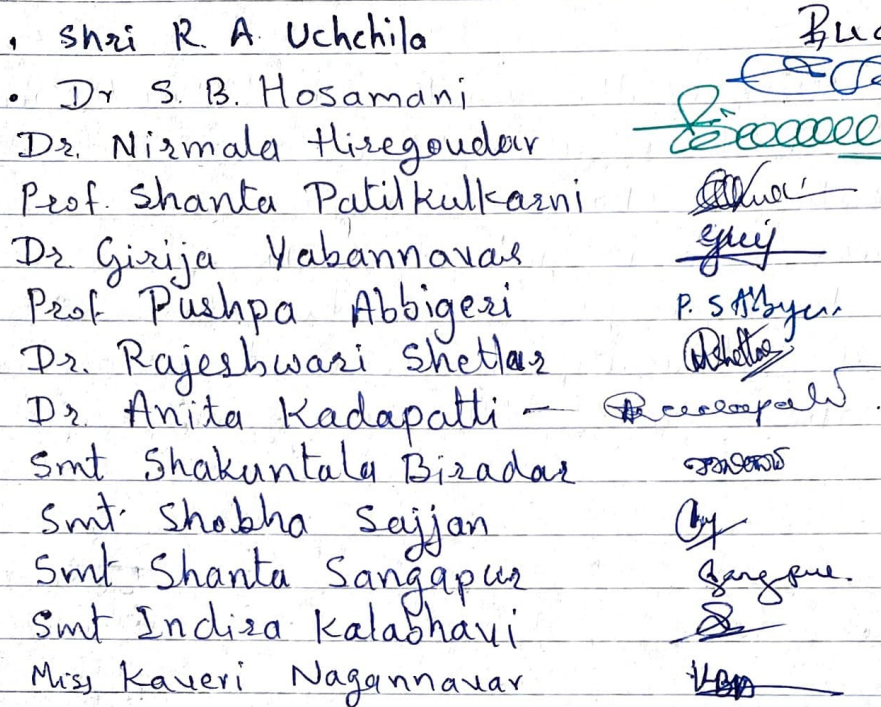 Shri R. A. Uchchila
Dr S. B. Hosamani
Dr. Nirmala Hiregoudar
Prof. Shanta Patilkulkarni
Dr. Girija Yabannavar
Prof Pushpa Abbigeri P. S
Dr. Rajeshwari Shettar
Dr. Anita Kadapatti -
Smt Shakuntala Biradar
Smt. Shobha Sajjan
Smt Shanta Sangapur
Smt Indira Kalabhavi
Miss Kaveri Nagannavar